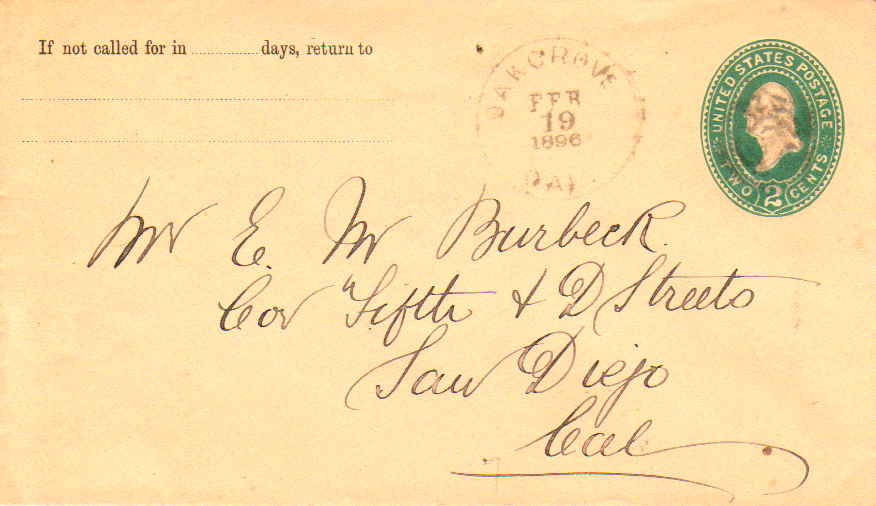 If not called for in ................ days, return to
OAKGROVE
FEB
19
1896
CAL
UNITED STATES POSTAGE
TWO 2 CENTS
Mr E. M Burbeck.
Cor Fifth & D Streets
San Diego
Cal